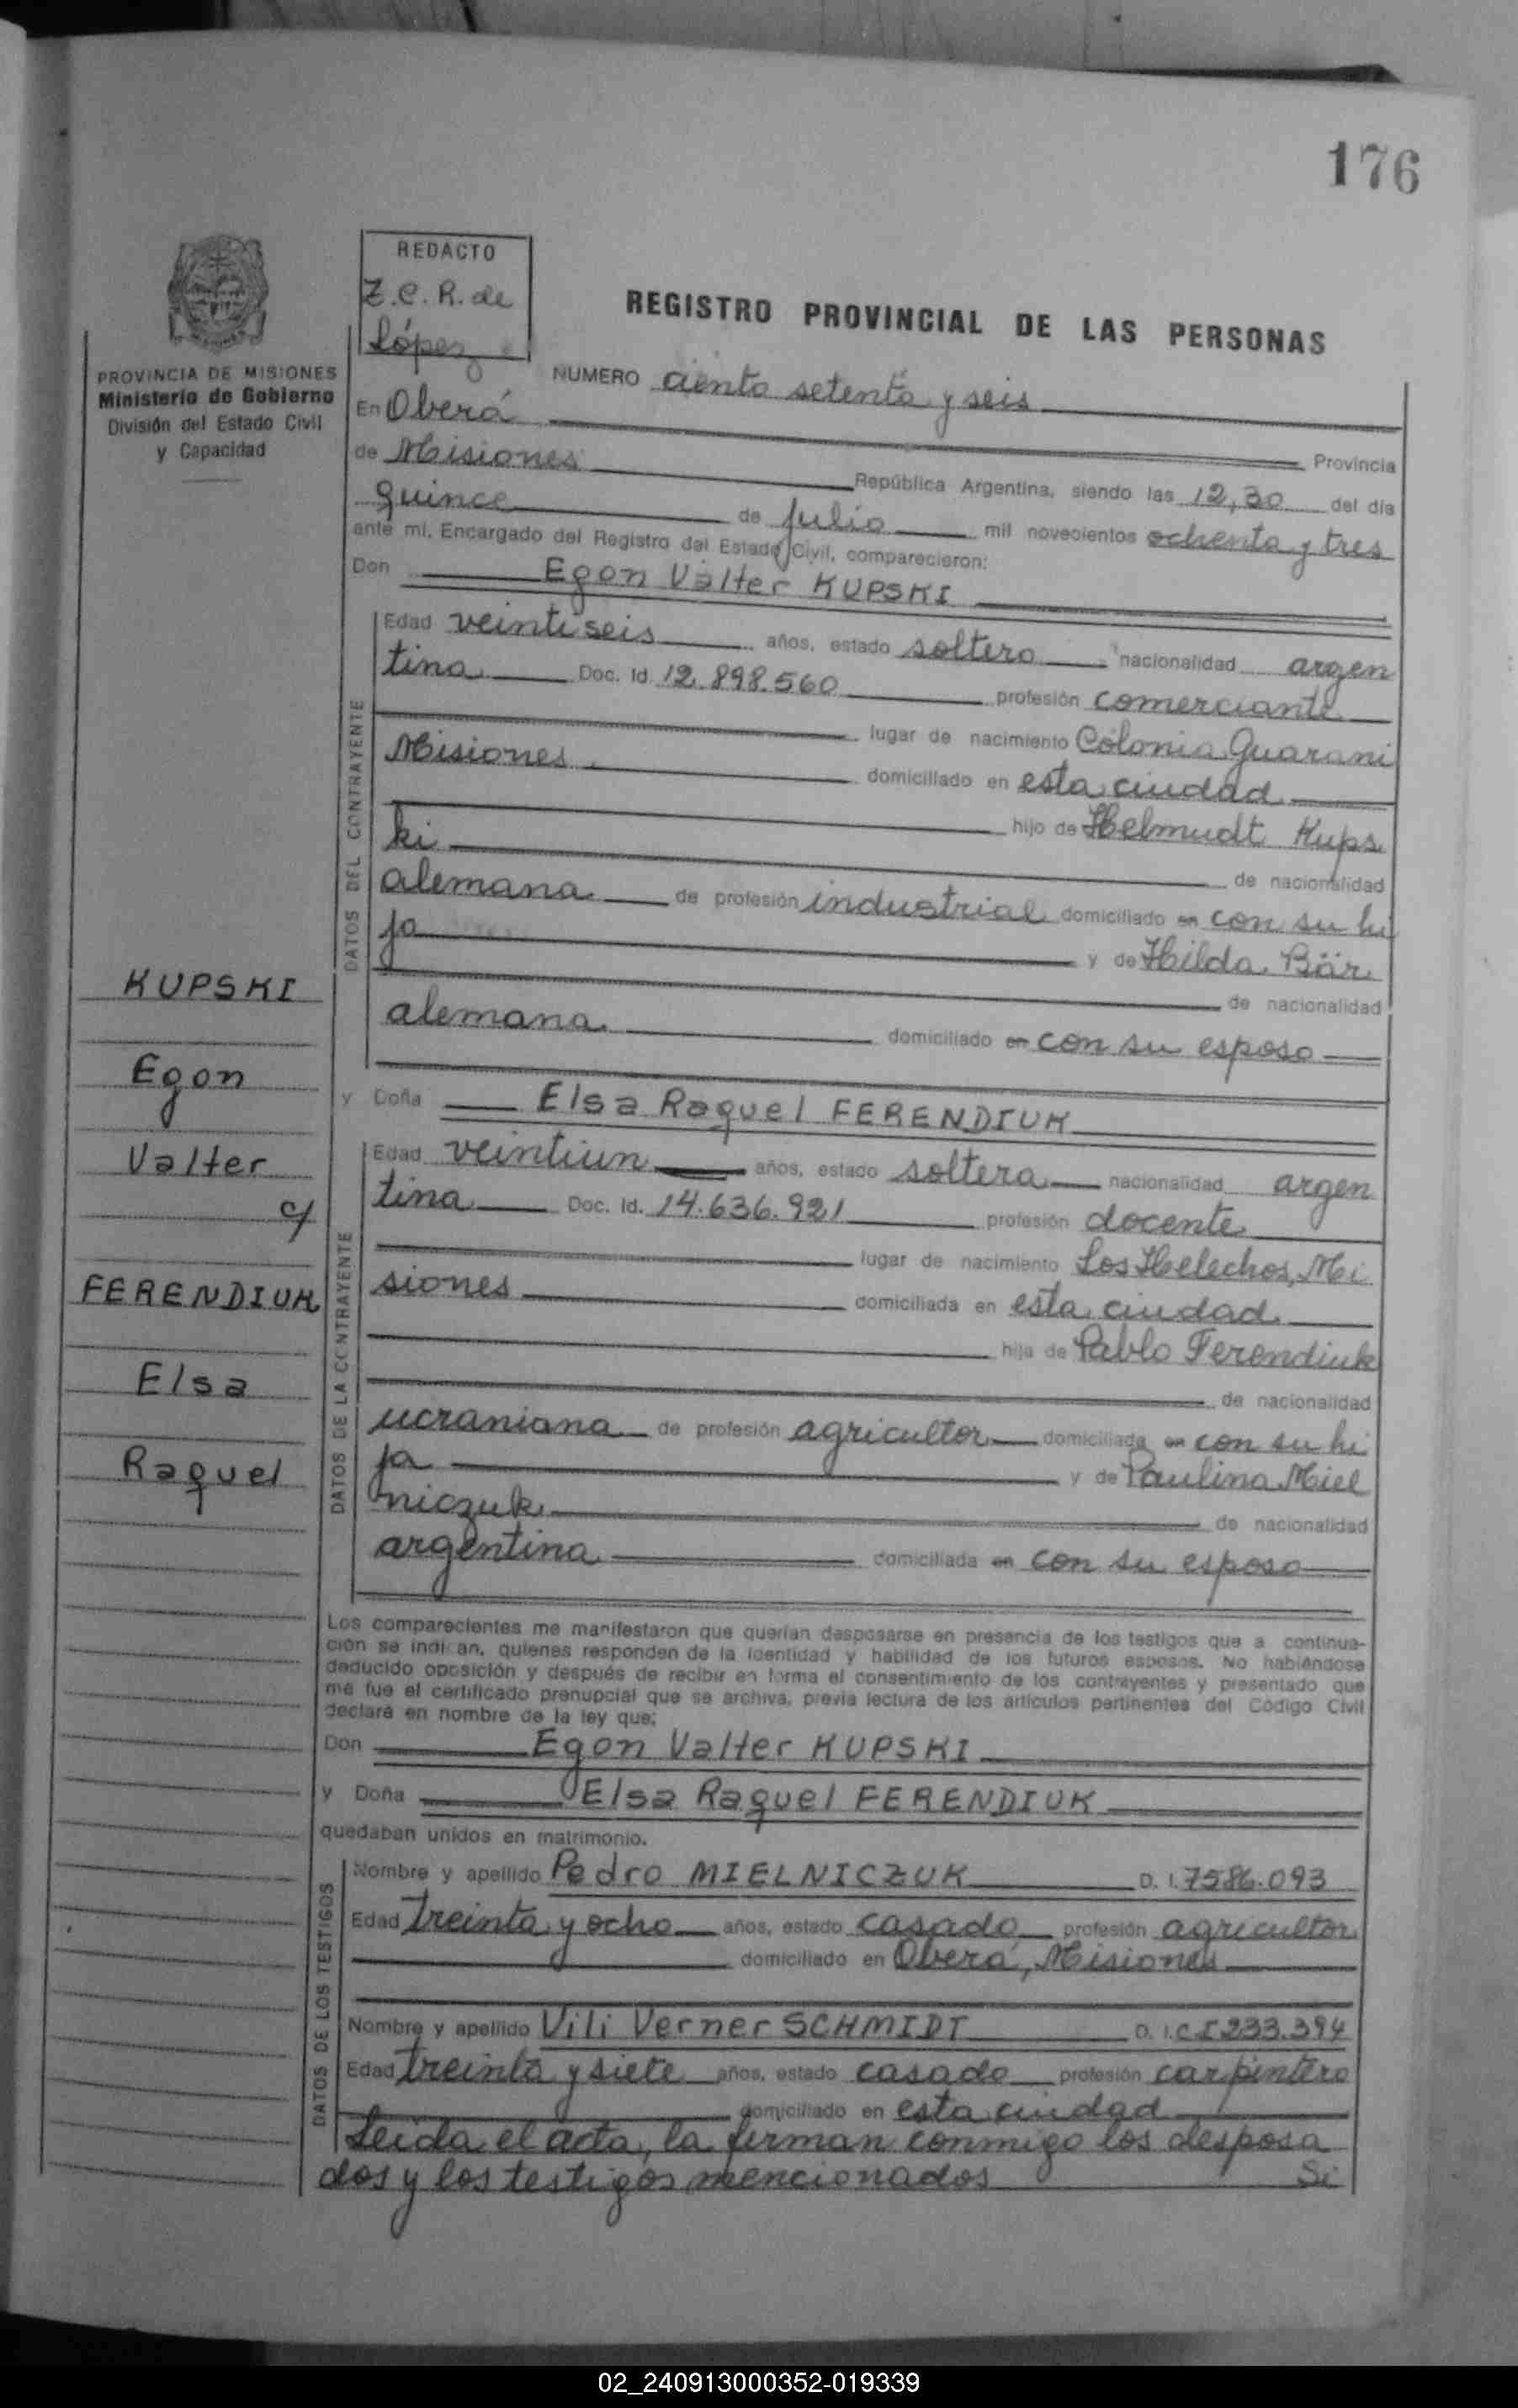 176
REDACTO
Z.C.R. de
López
REGISTRO PROVINCIAL DE LAS PERSONAS
PROVINCIA DE MISIONES
Ministerio de Gobierno
División del Estado Civil
y Capacidad
NUMERO ciento setenta y seis
En Oberá Provincia
de Misiones República Argentina, siendo las 12,30 del día
quince de julio mil novecientos ochenta y tres
ante mí, Encargado del Registro del Estado Civil, comparecieron:
Don Egon Valter KUPSKI
DATOS DEL CONTRAYENTE
Edad veintiseis años, estado soltero nacionalidad argen
tina Doc. Id. 12.898.560 profesión comerciante
lugar de nacimiento Colonia Guarani
Misiones domiciliado en esta ciudad
hijo de Helmudt Kups
ki de nacionalidad
alemana de profesión industrial domiciliado en con su hi
jo y de Hilda Bär
de nacionalidad
alemana domiciliado en con su esposo
y Doña Elsa Raquel FERENDIUK
DATOS DE LA CONTRAYENTE
Edad veintiun años, estado soltera nacionalidad argen
tina Doc. Id. 14.636.921 profesión docente
lugar de nacimiento Los Helechos, Mi
siones domiciliada en esta ciudad
hija de Pablo Ferendiuk
de nacionalidad
ucraniana de profesión agricultor domiciliada en con su hi
ja y de Paulina Miel
niczuk de nacionalidad
argentina domiciliada en con su esposo
KUPSKI
Egon
Valter
c/
FERENDIUK
Elsa
Raquel
Los comparecientes me manifestaron que querían desposarse en presencia de los testigos que a continua-
ción se indi an, quienes responden de la identidad y habilidad de los futuros esposos. No habiéndose
deducido oposición y después de recibir en forma el consentimiento de los contrayentes y presentado que
me fue el certificado prenupcial que se archiva, previa lectura de los artículos pertinentes del Código Civil
declaré en nombre de la ley que:
Don Egon Valter KUPSKI
y Doña Elsa Raquel FERENDIUK
quedaban unidos en matrimonio.
DATOS DE LOS TESTIGOS
Nombre y apellido Pedro MIELNICZUK D. I. 7586.093
Edad treinta y ocho años, estado casado profesión agricultor
domiciliado en Oberá, Misiones
Nombre y apellido Vili Verner SCHMIDT D. I. C I 233.394
Edad treinta y siete años, estado casado profesión carpintero
domiciliado en esta ciudad
Leida el acta, la firman conmigo los desposa
dos y los testigos mencionados Si
02_240913000352-019339